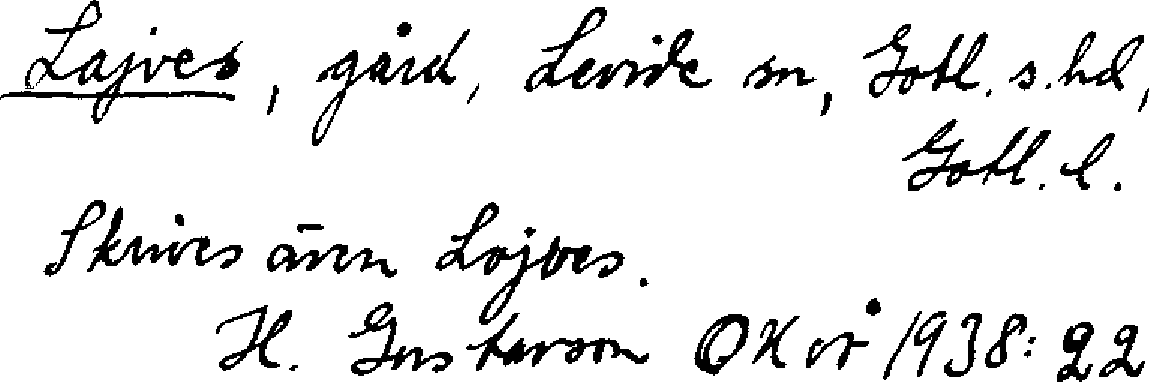 Lajves, gård, Levide sn, Gotl. s. hd,
Gotl. l.
Skrives även Lojves.
H. Gustavson OKvå 1938: 22